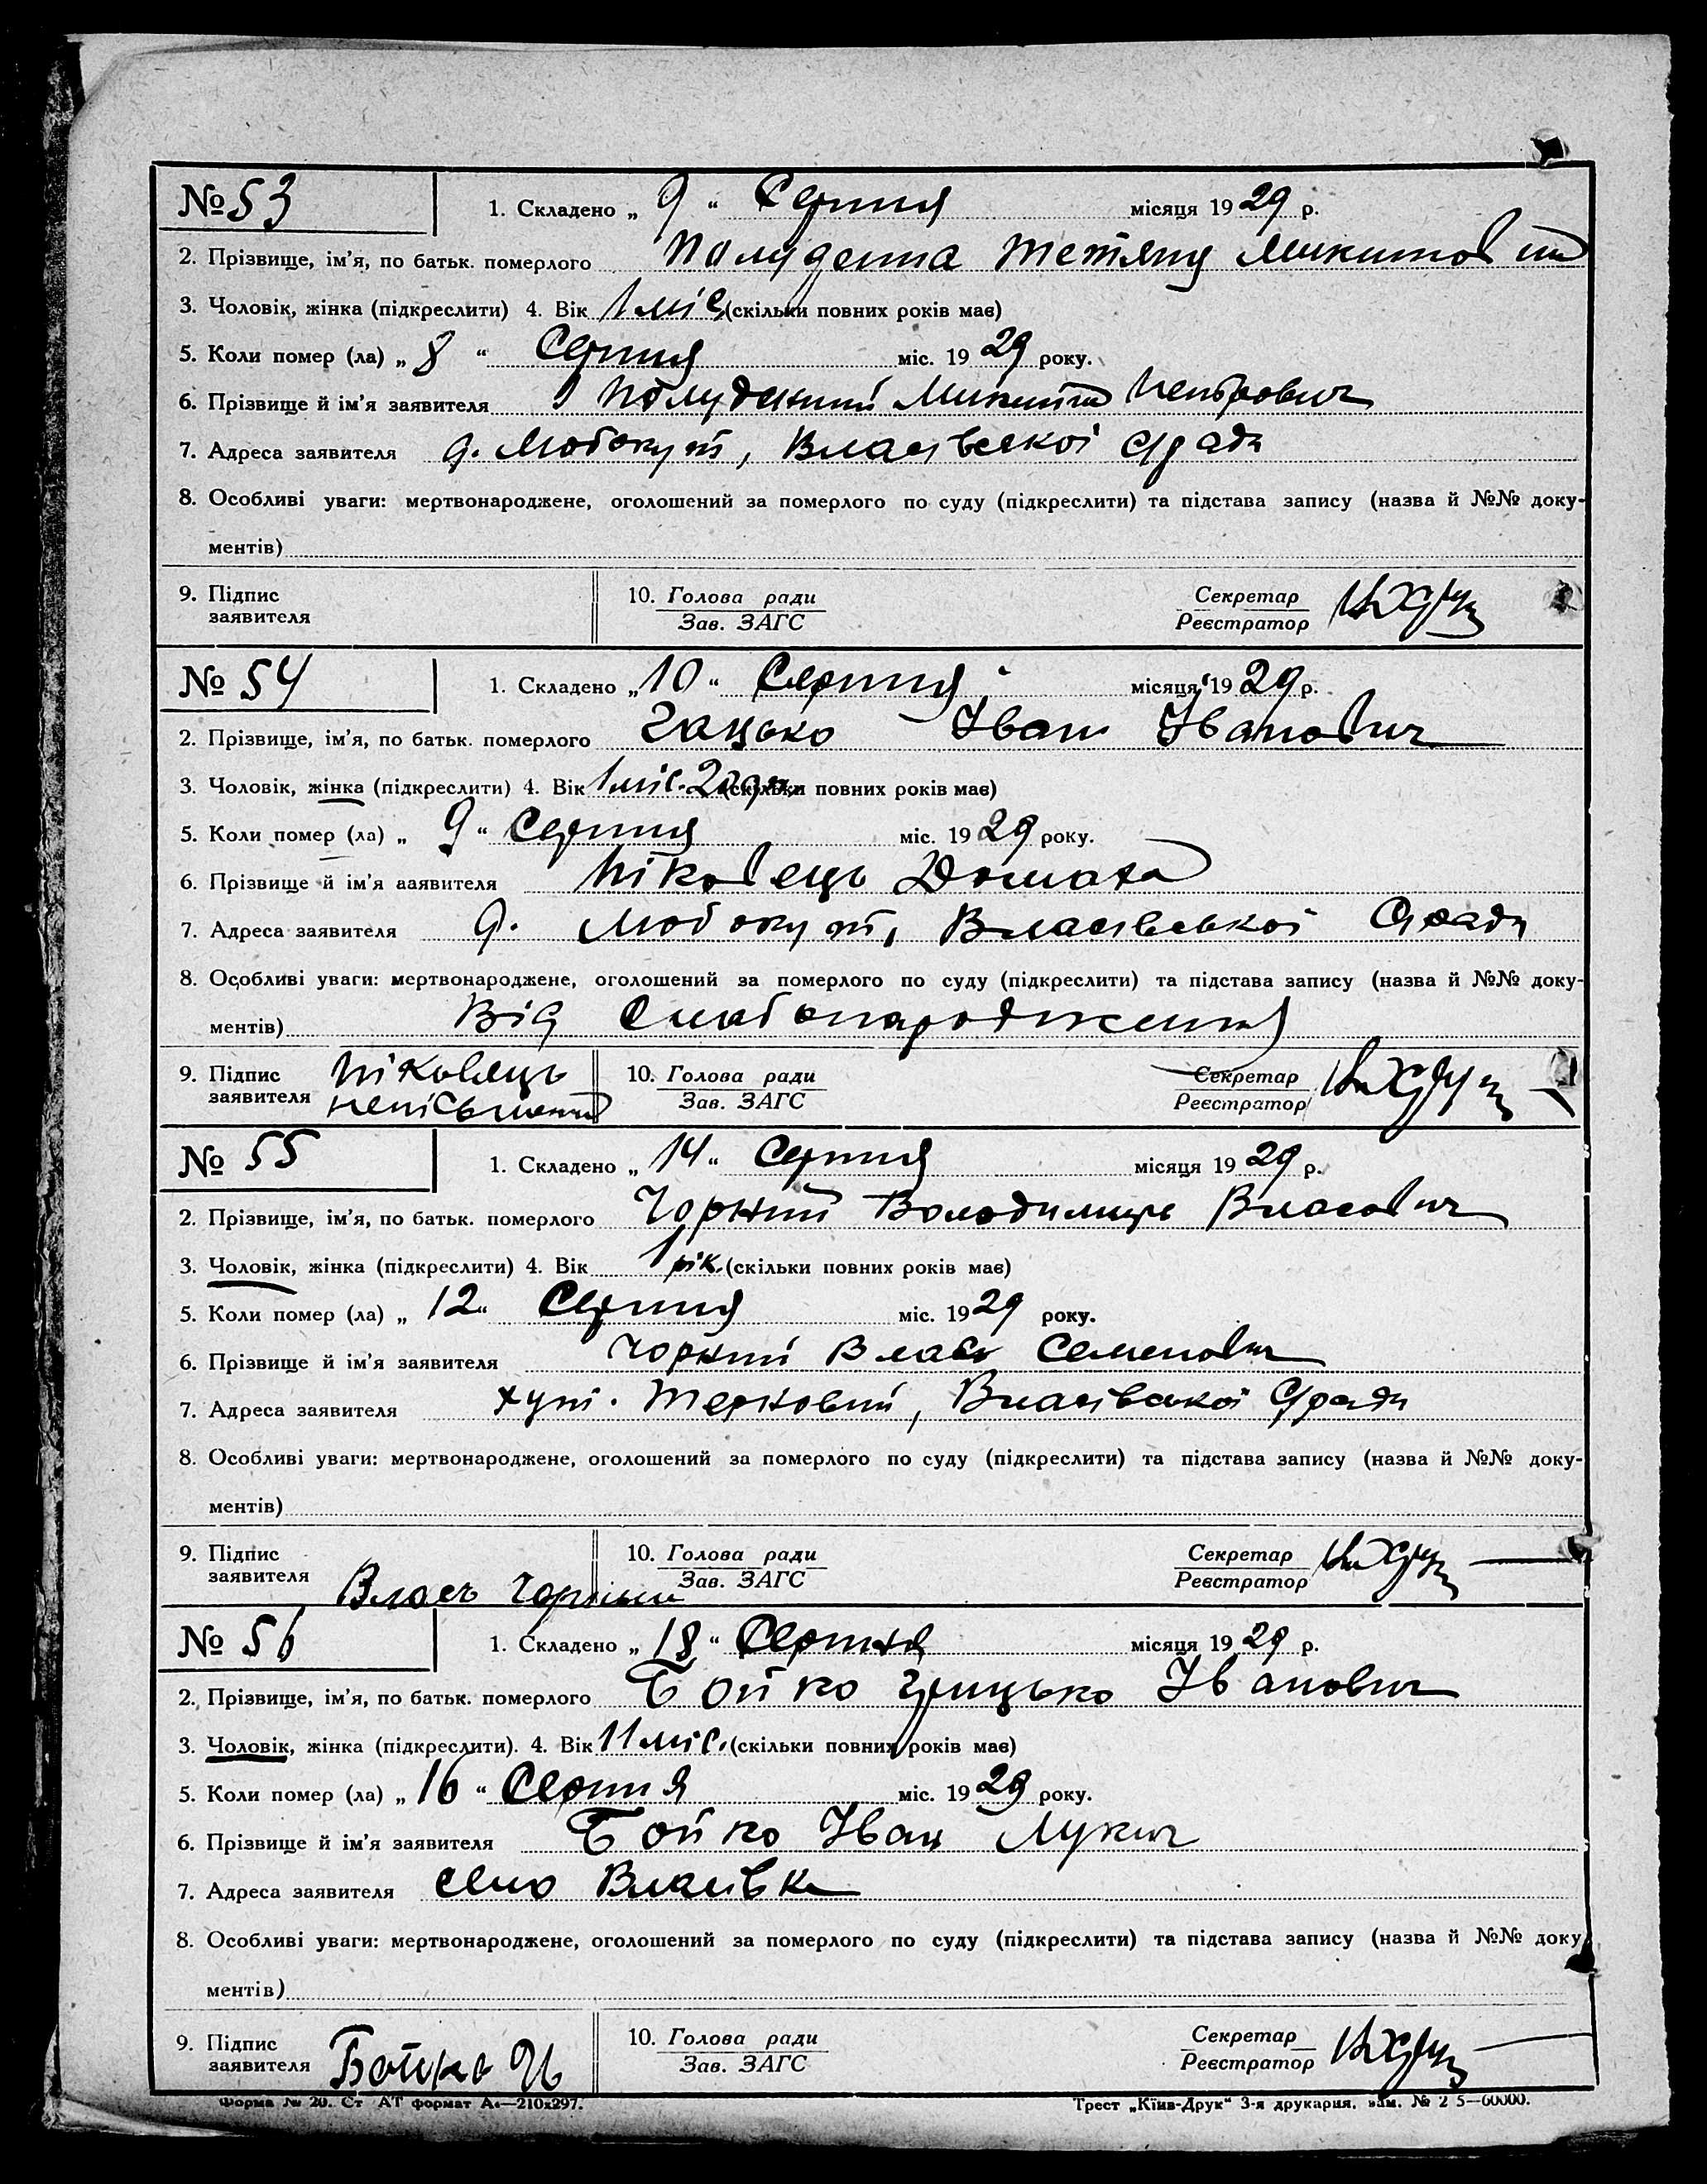 № 53 1. Складено „ 9 " Серпня місяця 1929 р.
2. Прізвище, ім'я, по батьк. померлого Полуденна Тетяну Микитовна
3. Чоловік, жінка (підкреслити) 4. Вік 1 міс. (скільки повних років має)
5. Коли помер (ла) „ 8 " Серпня міс. 1929 року.
6. Прізвище й ім'я заявителя Полуденний Микита Петрович
7. Адреса заявителя Власівської с/ради
8. Особливі уваги: мертвонароджене, оголошений за померлого по суду (підкреслити) та підстава запису (назва й №№ доку-
ментів)
9. Підпис 10. Голова ради Секретар
заявителя Зав. ЗАГС Реєстратор
№ 54 1. Складено „10" Серпня місяця 1929 р.
2. Прізвище, ім'я, по батьк. померлого Гацько Іван Іванович
3. Чоловік, жінка (підкреслити) 4. Вік 1 міс. (скільки повних років має)
5. Коли помер (ла) „ 9 " Серпня міс. 1929 року.
6. Прізвище й ім'я ааявителя Піковець Домаха
7. Адреса заявителя Власівської с/ради
8. Особливі уваги: мертвонароджене, оголошений за померлого по суду (підкреслити) та підстава запису (назва й №№ доку-
ментів) Від Слабонародження
9. Підпис Піковець 10. Голова ради Секретар
заявителя неписьменна Зав. ЗАГС Реєстратор
№ 55 1. Складено „ 14 " Серпня місяця 1929 р.
2. Прізвище, ім'я, по батьк. померлого Чорний Володимир Власович
3. Чоловік, жінка (підкреслити) 4. Вік 1 рік. (скільки повних років має)
5. Коли помер (ла) „ 12 " Серпня міс. 1929 року.
6. Прізвище й ім'я заявителя Чорний Влас Семенович
7. Адреса заявителя хут. Терновий, Власівської с/ради
8. Особливі уваги: мертвонароджене, оголошений за померлого по суду (підкреслити) та підстава запису (назва й №№ доку-
ментів)
9. Підпис 10. Голова ради Секретар
заявителя Власъ Чорний Зав. ЗАГС Реєстратор
№ 56 1. Складено „ 18 " Серпня місяця 1929 р.
2. Прізвище, ім'я, по батьк. померлого Бойко Грицько Іванович
3. Чоловік, жінка (підкреслити). 4. Вік 11 міс. (скільки повних років має)
5. Коли помер (ла) „ 16 " Серпня міс. 1929 року.
6. Прізвище й ім'я заявителя Бойко Іван Лукич
7. Адреса заявителя село Власівка
8. Особливі уваги: мертвонароджене, оголошений за померлого по суду (підкреслити) та підстава запису (назва й №№ доку
ментів)
9. Підпис Бойко 10. Голова ради Секретар
заявителя Зав. ЗАГС Реєстратор
Форма № 20. Ст АТ формат А4—210x297. Трест „Київ-Друк" 3-я друкарня, зам. № 2 5—60000.